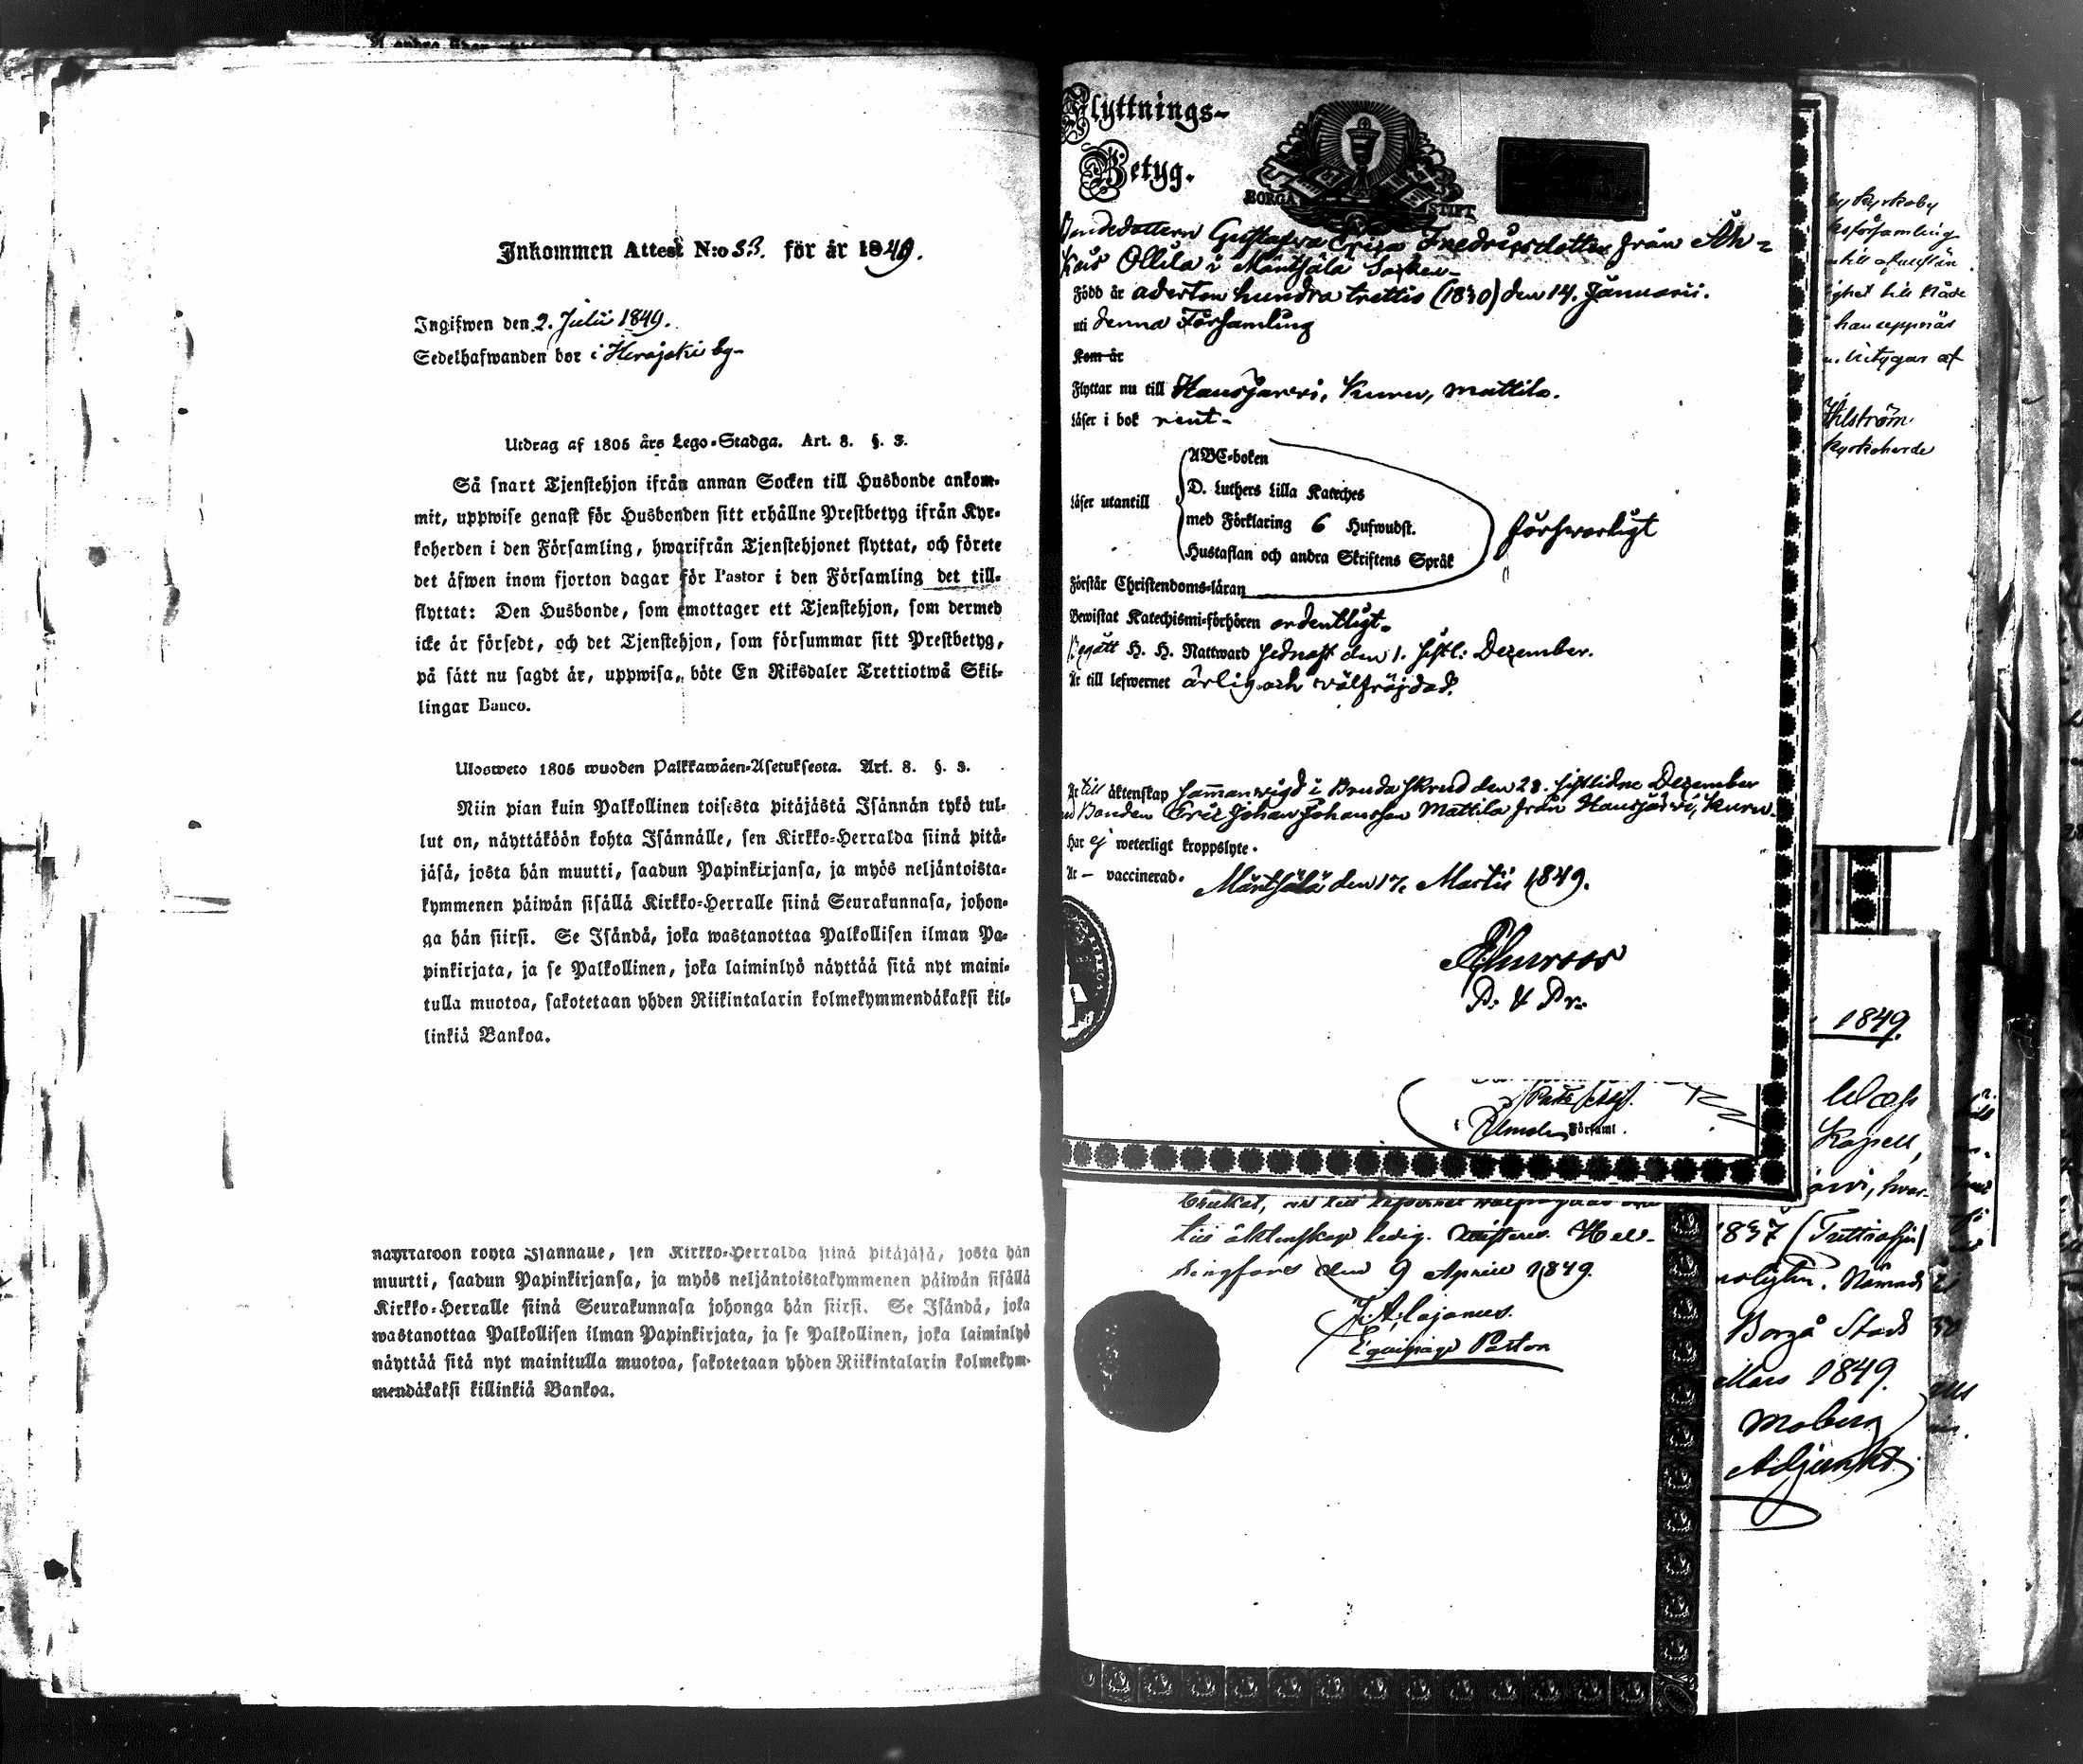 Inkommen Attest N:o 33. för år 1849.
Ingifwen den 2. Julii 1849.
Sedelhafwanden bor i Herajoki by-
Utdrag af 1805 års Lego-Stadga. Art. 8. §. 3.
Så snart Tjenstehjon ifrån annan Socken till Husbonde ankom-
mit, uppwise genast för Husbonden sitt erhållne Prestbetyg ifrån Kyr-
koherden i den Församling, hwarifrån Tjenstehjonet flyttat, och förete
det äfwen inom fjorton dagar för Pastor i den Församling det till-
flyttat: Den Husbonde, som emottager ett Tjenstehjon, som dermed
icke är försedt, och det Tjenstehjon, som försummar sitt Prestbetyg,
på sätt nu sagdt är, uppwisa, böte En Riksdaler Trettiotwå Skil-
lingar Banco.
Ulosweto 1805 wuoden Palkkawäen-Asetuksesta. Art. 8. §. 3.
Niin pian kuin Palkollinen toisesta pitäjästä Isännän tykö tul-
lut on, näyttäköön kohta Isännälle, sen Kirkko-Herralda siinä pitä-
jäsä, josta hän muutti, saadun Papinkirjansa, ja myös neljäntoista-
kymmenen päiwän sisällä Kirkko-Herralle siinä Seurakunnasa, johon-
ga hän siirsi. Se Isändä, joka wastanottaa Palkollisen ilman Pa-
pinkirjata, ja se Palkollinen, joka laiminlyö näyttää sitä nyt maini-
tulla muotoa, sakotetaan yhden Riikintalarin kolmekymmendäkaksi kil-
linkiä Bankoa.
näyttäköön kohta Isännälle, sen Kirkko-Herralda siinä pitäjäsä, josta hän
muutti, saadun Papinkirjansa, ja myös neljäntoistakymmenen päiwän sisällä
Kirkko-Herralle siinä Seurakunnasa johonga hän siirsi. Se Isändä, joka
wastanottaa Palkollisen ilman Papinkirjata, ja se Palkollinen, joka laiminlyö
näyttää sitä nyt mainitulla muotoa, sakotetaan yhden Riikintalarin kolmekym-
mendäkaksi killinkiä Bankoa.
Flyttnings-
Betyg.
BORGÅ STIFT
Bondedottern Gustafva Erica Fredricsdotter från
Ollila i Mäntsälä Socken
Född år aderton hundra trettio (1830) den 14. Januarii.
uti denna Församling
Kom år
Flyttar nu till Hausjärvi, Kuru, Mattila.
Läser i bok rent-
Läser utantill
ABC-boken
D. Luthers Lilla Kateches
med Förklaring 6 Hufwudst.
Hustaflan och andra Skriftens Språk
försvarligt
Förstår Christendoms-läran
Bewistat Katechismi-förhören ordentligt.
Begått H. H. Nattward sednast den 1. sistl: December.
Är till lefwernet ärlig och välfräjdad.
Är till äktenskap sammanvigd i Bruda skrud den 28. sistlidne December
med Bonden Eric Johan Johansson Mattila från Hausjärvi, Kuru.
Har ej weterligt kroppslyte.
Är - vaccinerad.
Mäntsälä den 17. Martii 1849.
P. & Pr.
Församl.
till äktenskap ledig. Hel-
singfors den 9 April 1849.
J. A. Cajanus.
Equipage Pastor
by Kyrkoby
kyrkoherde
1849.
Kapell,
1837 (Trettiosju)
Borgå Stad
Mars 1849.
Moberg
Adjunkt.